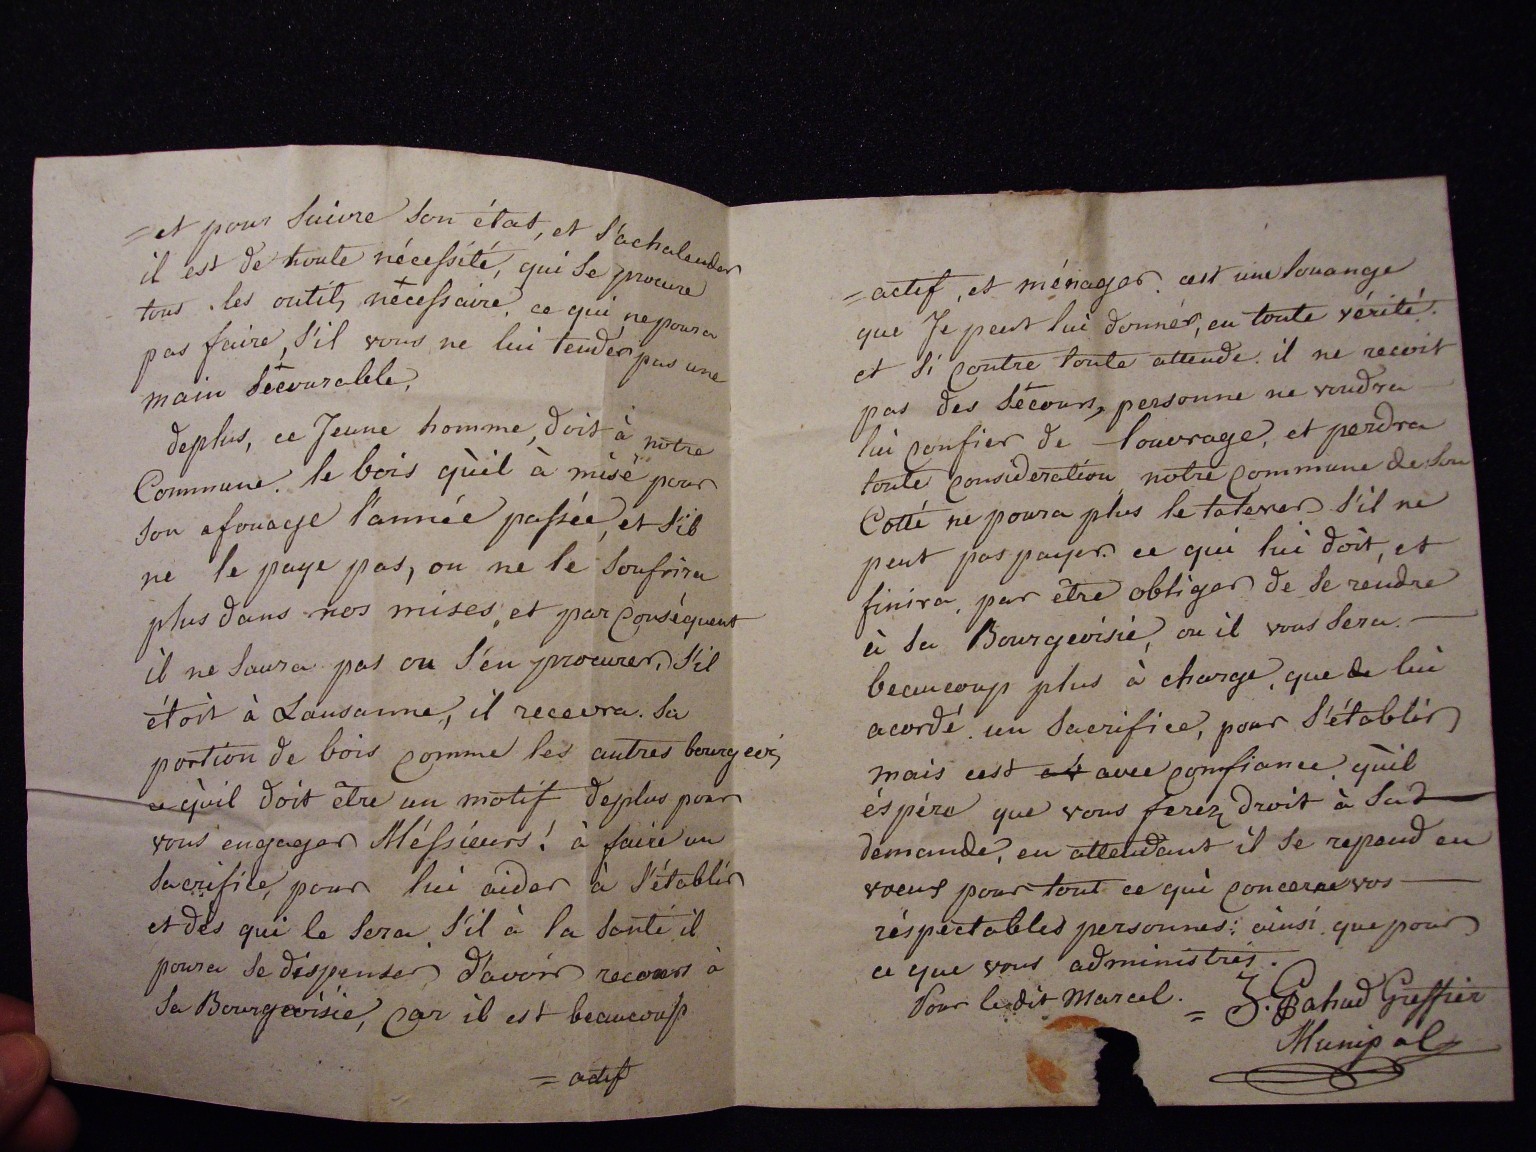 = et pour suivre son état, et s'achalander
il est de toute nécessité, qui se procure
tous les outils nécessaire, ce qui ne poura
pas faire, s'il vous ne lui tender pas une
main sécourable.
deplus, ce Jeune homme, doit à notre
Commune. le bois qu'il à misé pour
son afouage l'année passée, et s'il
ne le paye pas, on ne le soufrira
plus dans nos mises, et par conséquent
il ne saura pas ou s'en procurer, s'il
étoit à Lausanne, il recevra sa
portion de bois comme les autres bourgeois,
ce qu'il doit être un motif deplus pour
vous engager Méssieurs! à faire un
sacrifice, pour lui aider à s'établir
et dès qui le sera, s'il à la santé il
poura se dispenser d'avoir recours à
sa Bourgeoisie, car il est beaucoup
= actif
= actif, et ménager. cest une louange
que Je peut lui donnér, en toute vérité.
et si contre toute attende il ne recoit
pas des sécours, personne ne voudra
lui confier de louvrage, et perdra
toute consideration, notre commune de son
Cotté ne poura plus le tolerer s'il ne
peut pas payer ce qui lui doit, et
finira, par être obliger de se réndre
à sa Bourgeoisie, ou il vous sera
beaucoup plus à charge, que de lui
acordé un sacrifice, pour s'établir
mais cest avec confiance qu'il
éspére que vous ferez droit à sa
demande, en attendant il se repend en
voeux pour tout ce qui concerne vos
réspectables personnes; ainsi que pour
ce que vous administrés.
Pour le dit Marcel. = J. Pahud Greffier
Munipal